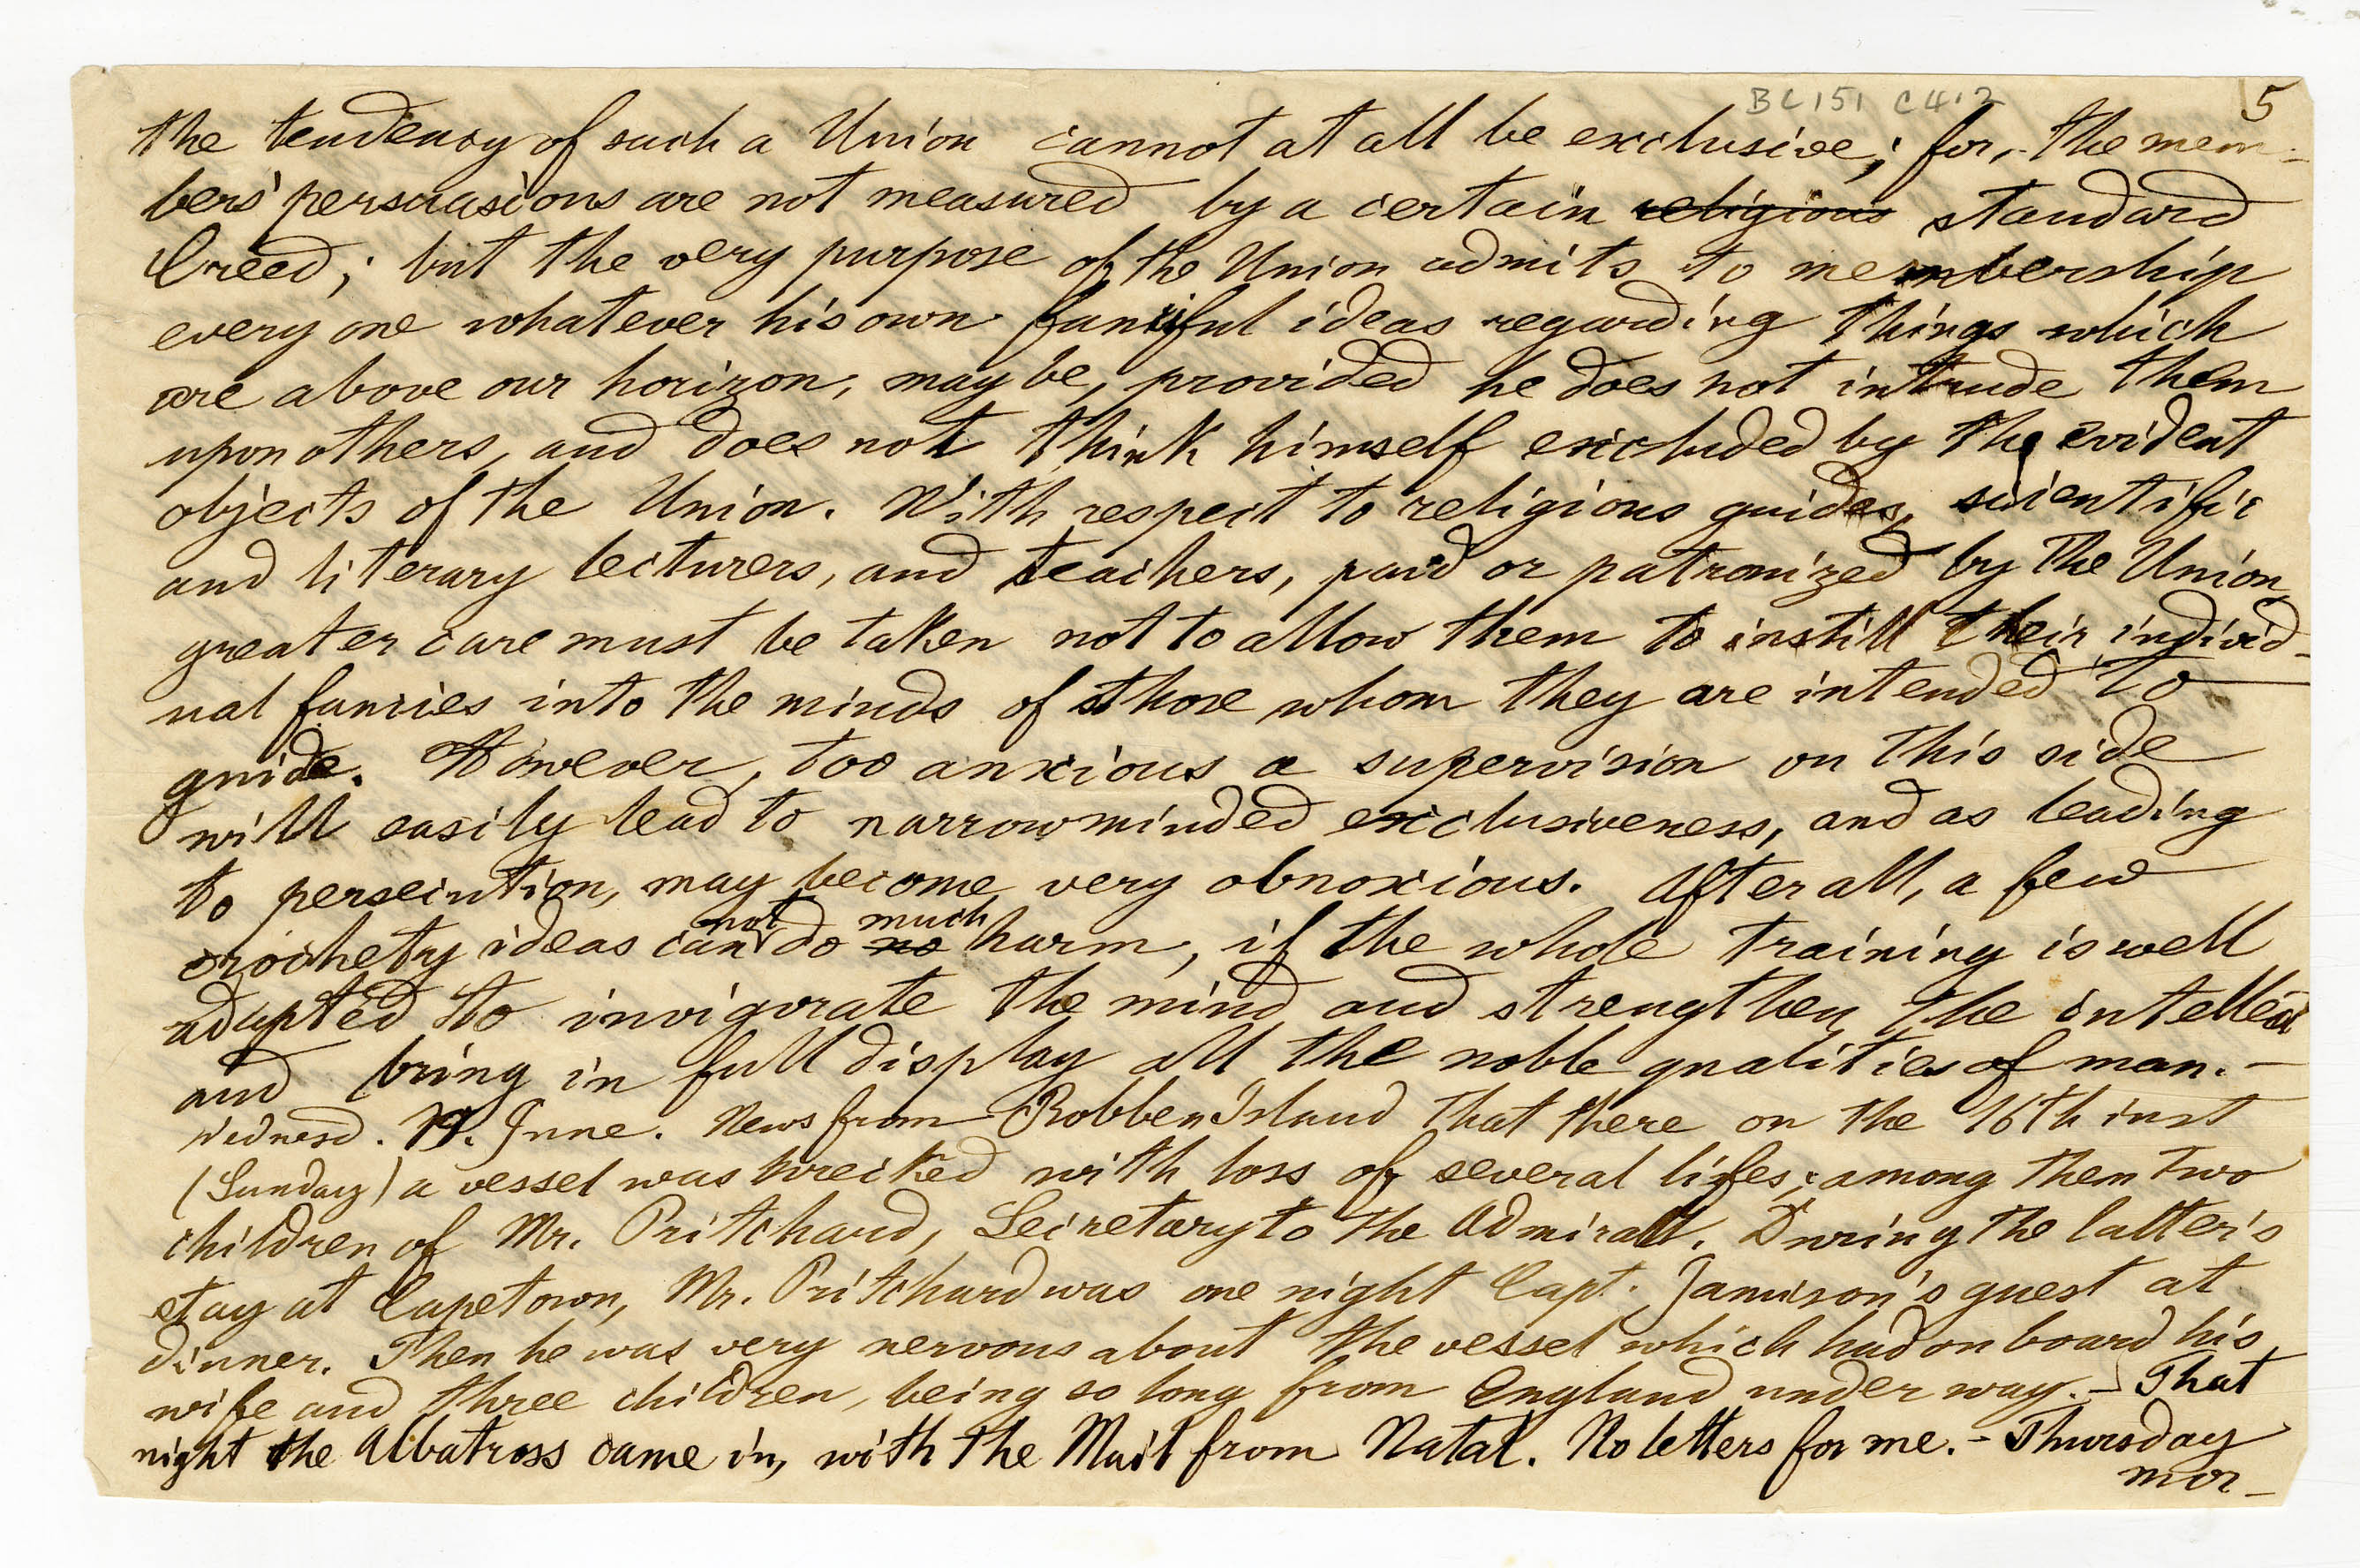 BC151 C4.2
5
the tendency of such a Union cannot at all be exclusive; for, the mem-
bers' persuasions are not measured by a certain religious standard
Creed; but the very purpose of the Union admits to membership
every one whatever his own fanciful ideas regarding things which
are above our horizon, may be, provided he does not intrude them
upon others, and does not think himself excluded by the evident
objects of the Union. With respect to religious guides, scientific
and literary lecturers, and teachers, paid or patronized by the Union,
greater care must be taken not to allow them to instill their individ-
ual fancies into the minds of those whom they are intended to
guide. However, too anxious a supervision on this side
will easily lead to narrowminded exclusiveness, and as leading
to persecution, may become very obnoxious. After all, a few
crochety ideas can not do no much harm, if the whole training is well
adapted to invigorate the mind and strengthen the intellect
and bring in full display all the noble qualities of man. –
Wednesd. 19. June. News from Robben Island that there on the 16th inst
(Sunday) a vessel was wrecked with loss of several lifes; among them two
children of Mr. Pritchard, Secretary to the Admiral. During the latter's
stay at Capetown, Mr. Pritchard was one night Capt. Jamison's guest at
dinner. Then he was very nervous about the vessel which had on board his
wife and three children, being so long from England under way. – That
night the Albatross came in, with the Mail from Natal. No letters for me. – Thursday
mor-